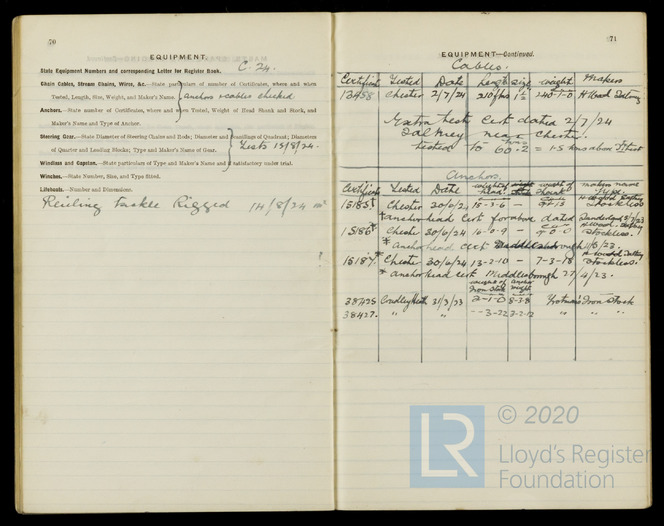 70
EQUIPMENT.
State Equipment Numbers and corresponding Letter for Register Book. C. 24.
Chain Cables, Stream Chains, Wires, &c.—State particulars of number of Certificates, where and when
Tested, Length, Size, Weight, and Maker's Name.
Anchors & cables checked
Anchors.—State number of Certificates, where and when Tested, Weight of Head Shank and Stock, and
Maker's Name and Type of Anchor.
Steering Gear.—State Diameter of Steering Chains and Rods; Diameter and Scantlings of Quadrant; Diameters
of Quarter and Leading Blocks; Type and Maker's Name of Gear.
Tests 13/8/24.
Windlass and Capstan.—State particulars of Type and Maker's Name and if satisfactory under trial.
Winches.—State Number, Size, and Type fitted.
Lifeboats.—Number and Dimensions.
Tackle Rigged 14/8/24
71
EQUIPMENT—Continued.
Cables.
Certificate Tested Date Length size weight Makers
13458 Chester 2/7/24 210 fms 240-1-0 H Wood Saltney
Extra test Cert dated 2/7/24
Saltney near Chester.
tested to 60-2 =
Anchors.
Certificate Tested Date weight of head weight of Shank makers name Type
15185 Chester 30/6/24 18-3-6 — Stockless
*anchor head cert for above dated Sunderland
15186 Chester 30/6/24 16-0-9 — Stockless.
* anchor head cert Middlesborough 11/6/23.
15187. Chester 30/6/24 13-2-10 — 7-3-18 H Wood Saltney Stockless.
* anchor head cert Middlesborough 27/4/23.
weight of Iron Stock anchor weight
38425 Cradley Heath 21/3/23 2-1-0 8-3-8 Trotmans Iron Stock
38427. " " " --3-22 3-2-12 " " "
© 2020
LR
Lloyd's Register
Foundation